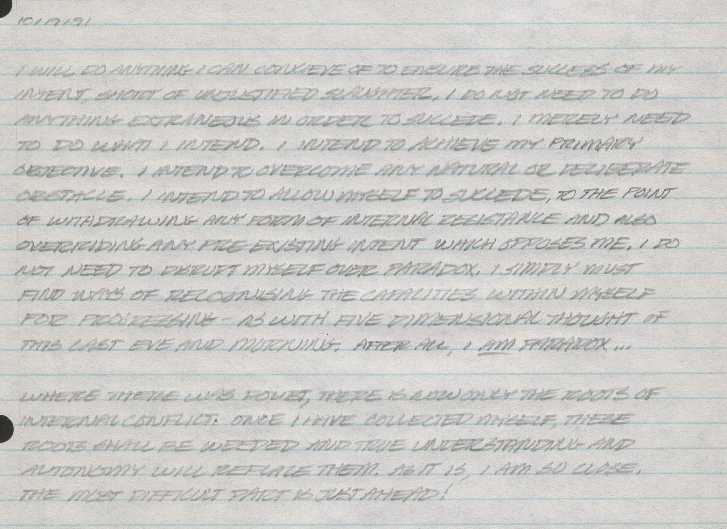 10/19/91
I WILL DO ANYTHING I CAN CONCIEVE OF TO ENSURE THE SUCCESS OF MY
INTENT, SHORT OF UNJUSTIFIED SLAUGHTER. I DO NOT NEED TO DO
ANYTHING EXTRANEOUS IN ORDER TO SUCCEDE. I MERELY NEED
TO DO WHAT I INTEND. I INTEND TO ACHIEVE MY PRIMARY
OBJECTIVE. I INTEND TO OVERCOME ANY NATURAL OR DELIBERATE
OBSTACLE. I INTEND TO ALLOW MYSELF TO SUCCEDE, TO THE POINT
OF WITHDRAWING ANY FORM OF INTERNAL RESISTANCE AND ALSO
OVERRIDING ANY PRE-EXISTING INTENT WHICH OPPOSES ME. I DO
NOT NEED TO DISRUPT MYSELF OVER PARADOX. I SIMPLY MUST
FIND WAYS OF RECOGNISING THE CAPACITIES WITHIN MYSELF
FOR PROGRESSING - AS WITH FIVE DIMENSIONAL THOUGHT OF
THIS LAST EVE AND MORNING. AFTER ALL, I AM PARADOX...
WHERE THERE WAS DOUBT, THERE IS NOW ONLY THE ROOTS OF
INTERNAL CONFLICT. ONCE I HAVE COLLECTED MYSELF, THERE
ROOTS SHALL BE WEEDED AND TRUE UNDERSTANDING AND
AUTONOMY WILL REPLACE THEM. AS IT IS, I AM SO CLOSE.
THE MOST DIFFICULT PART IS JUST AHEAD!